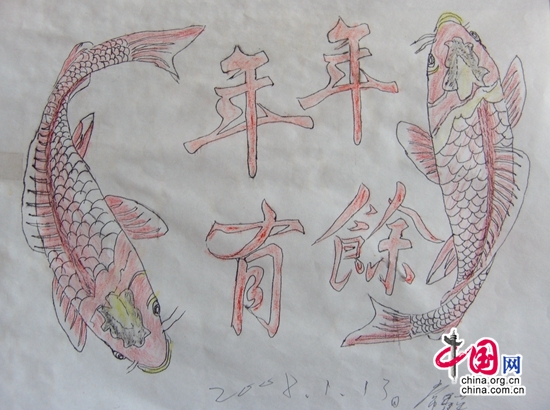 年年
有餘
2008.1.13日
中国网
china.org.cn
china.com.cn